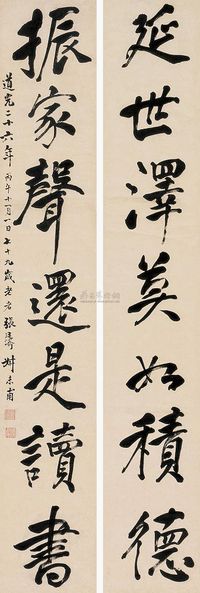 延世澤莫如積德
振家聲還是讀書
道光二十六年丙午十一月一日七十九歲老者張廷濟叔未甫